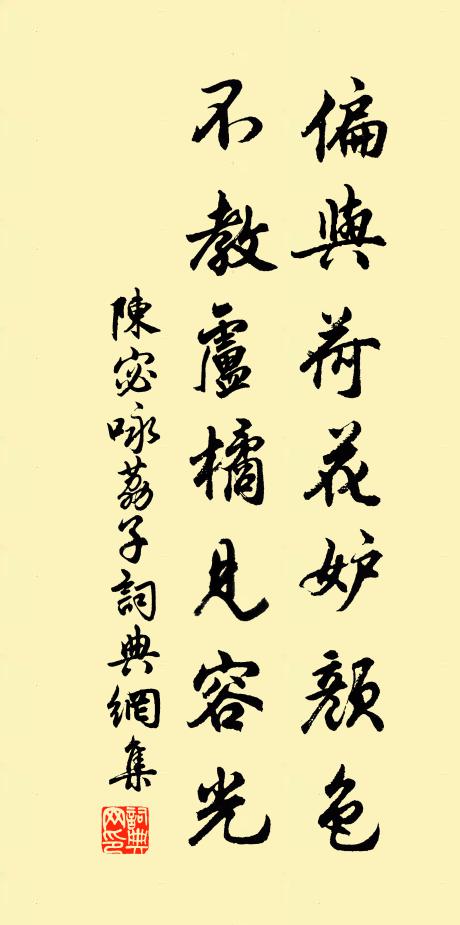 偏與荷花妒顏色
不教盧橘見容光
陳宓咏荔子詞典網集
詞典网印